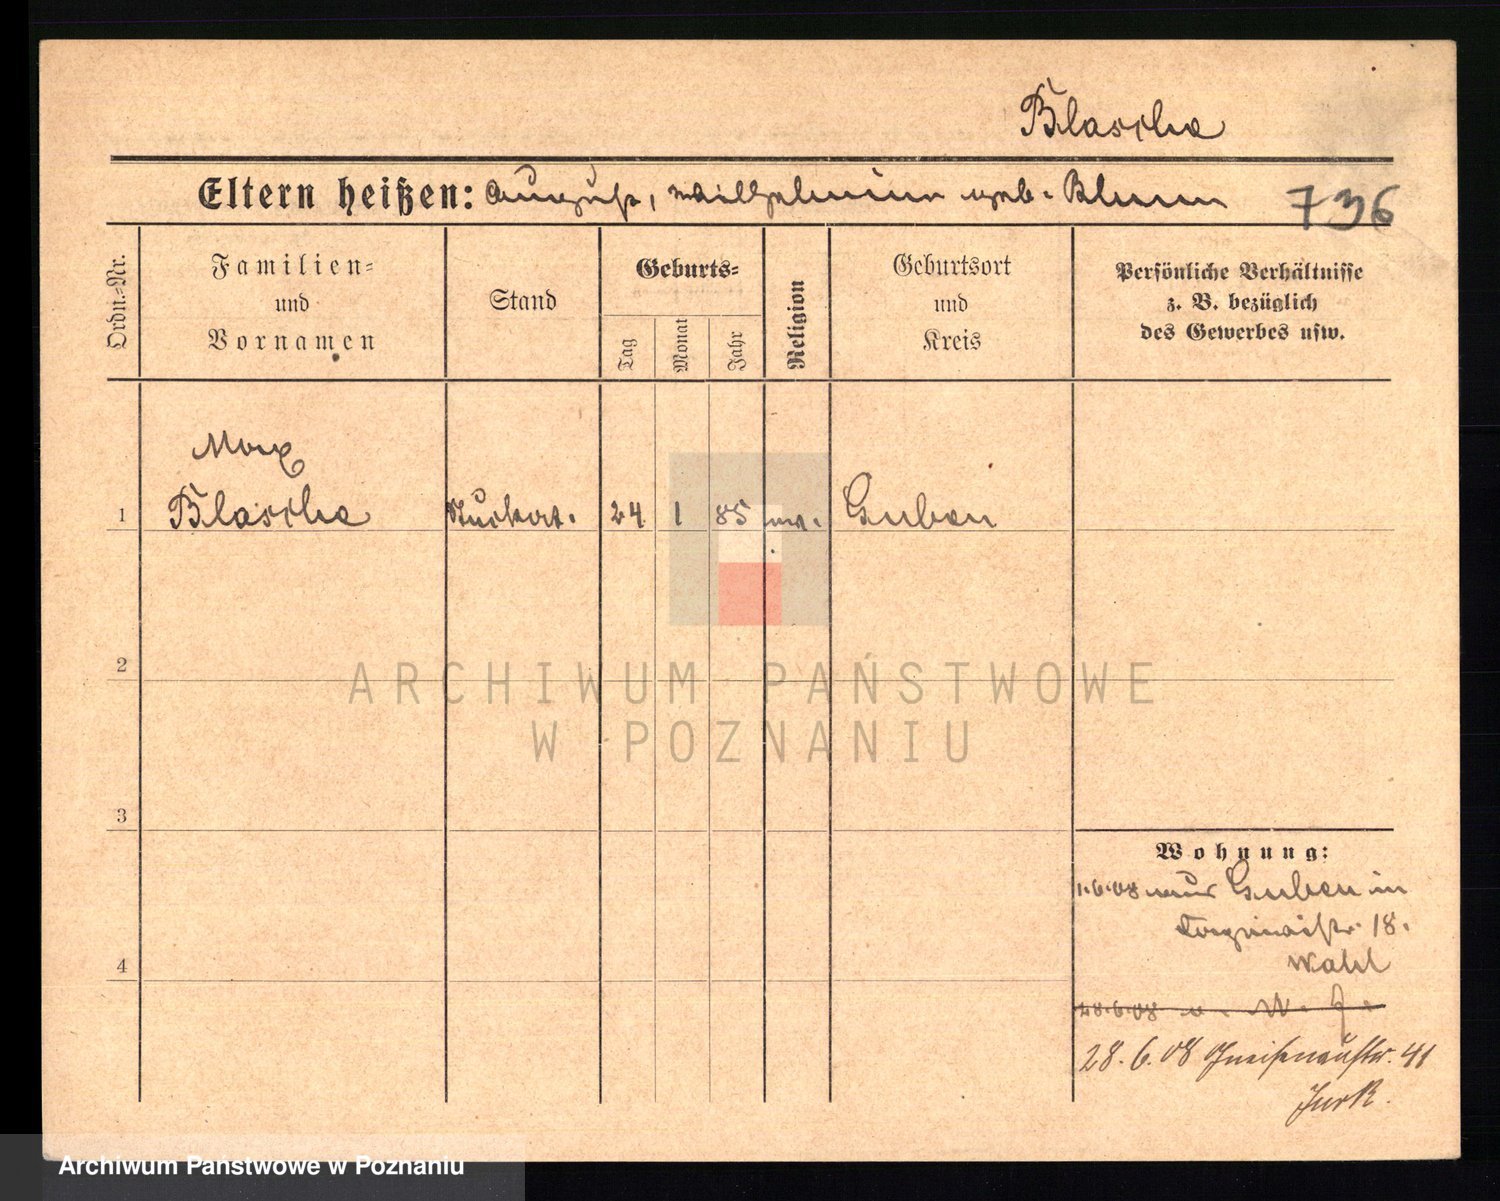 Blasche
Eltern heißen: August, Wilhelmine geb. Blum
736
Ordn.-Nr.
Familien-
und
Vornamen
Stand
Geburts-
Tag
Monat
Jahr
Religion
Geburtsort
und
Kreis
Persönliche Verhältnisse
z. B. bezüglich
des Gewerbes usw.
Max
1 Blasche 24 1 85 Guben
2
3
4
ARCHIWUM PAŃSTWOWE
W POZNANIU
Wohnung:
1.6.08 aus Guben in
18.
Wahl
28.6.08
28.6.08 Gneisenaustr. 41
Jurk.
Archiwum Państwowe w Poznaniu